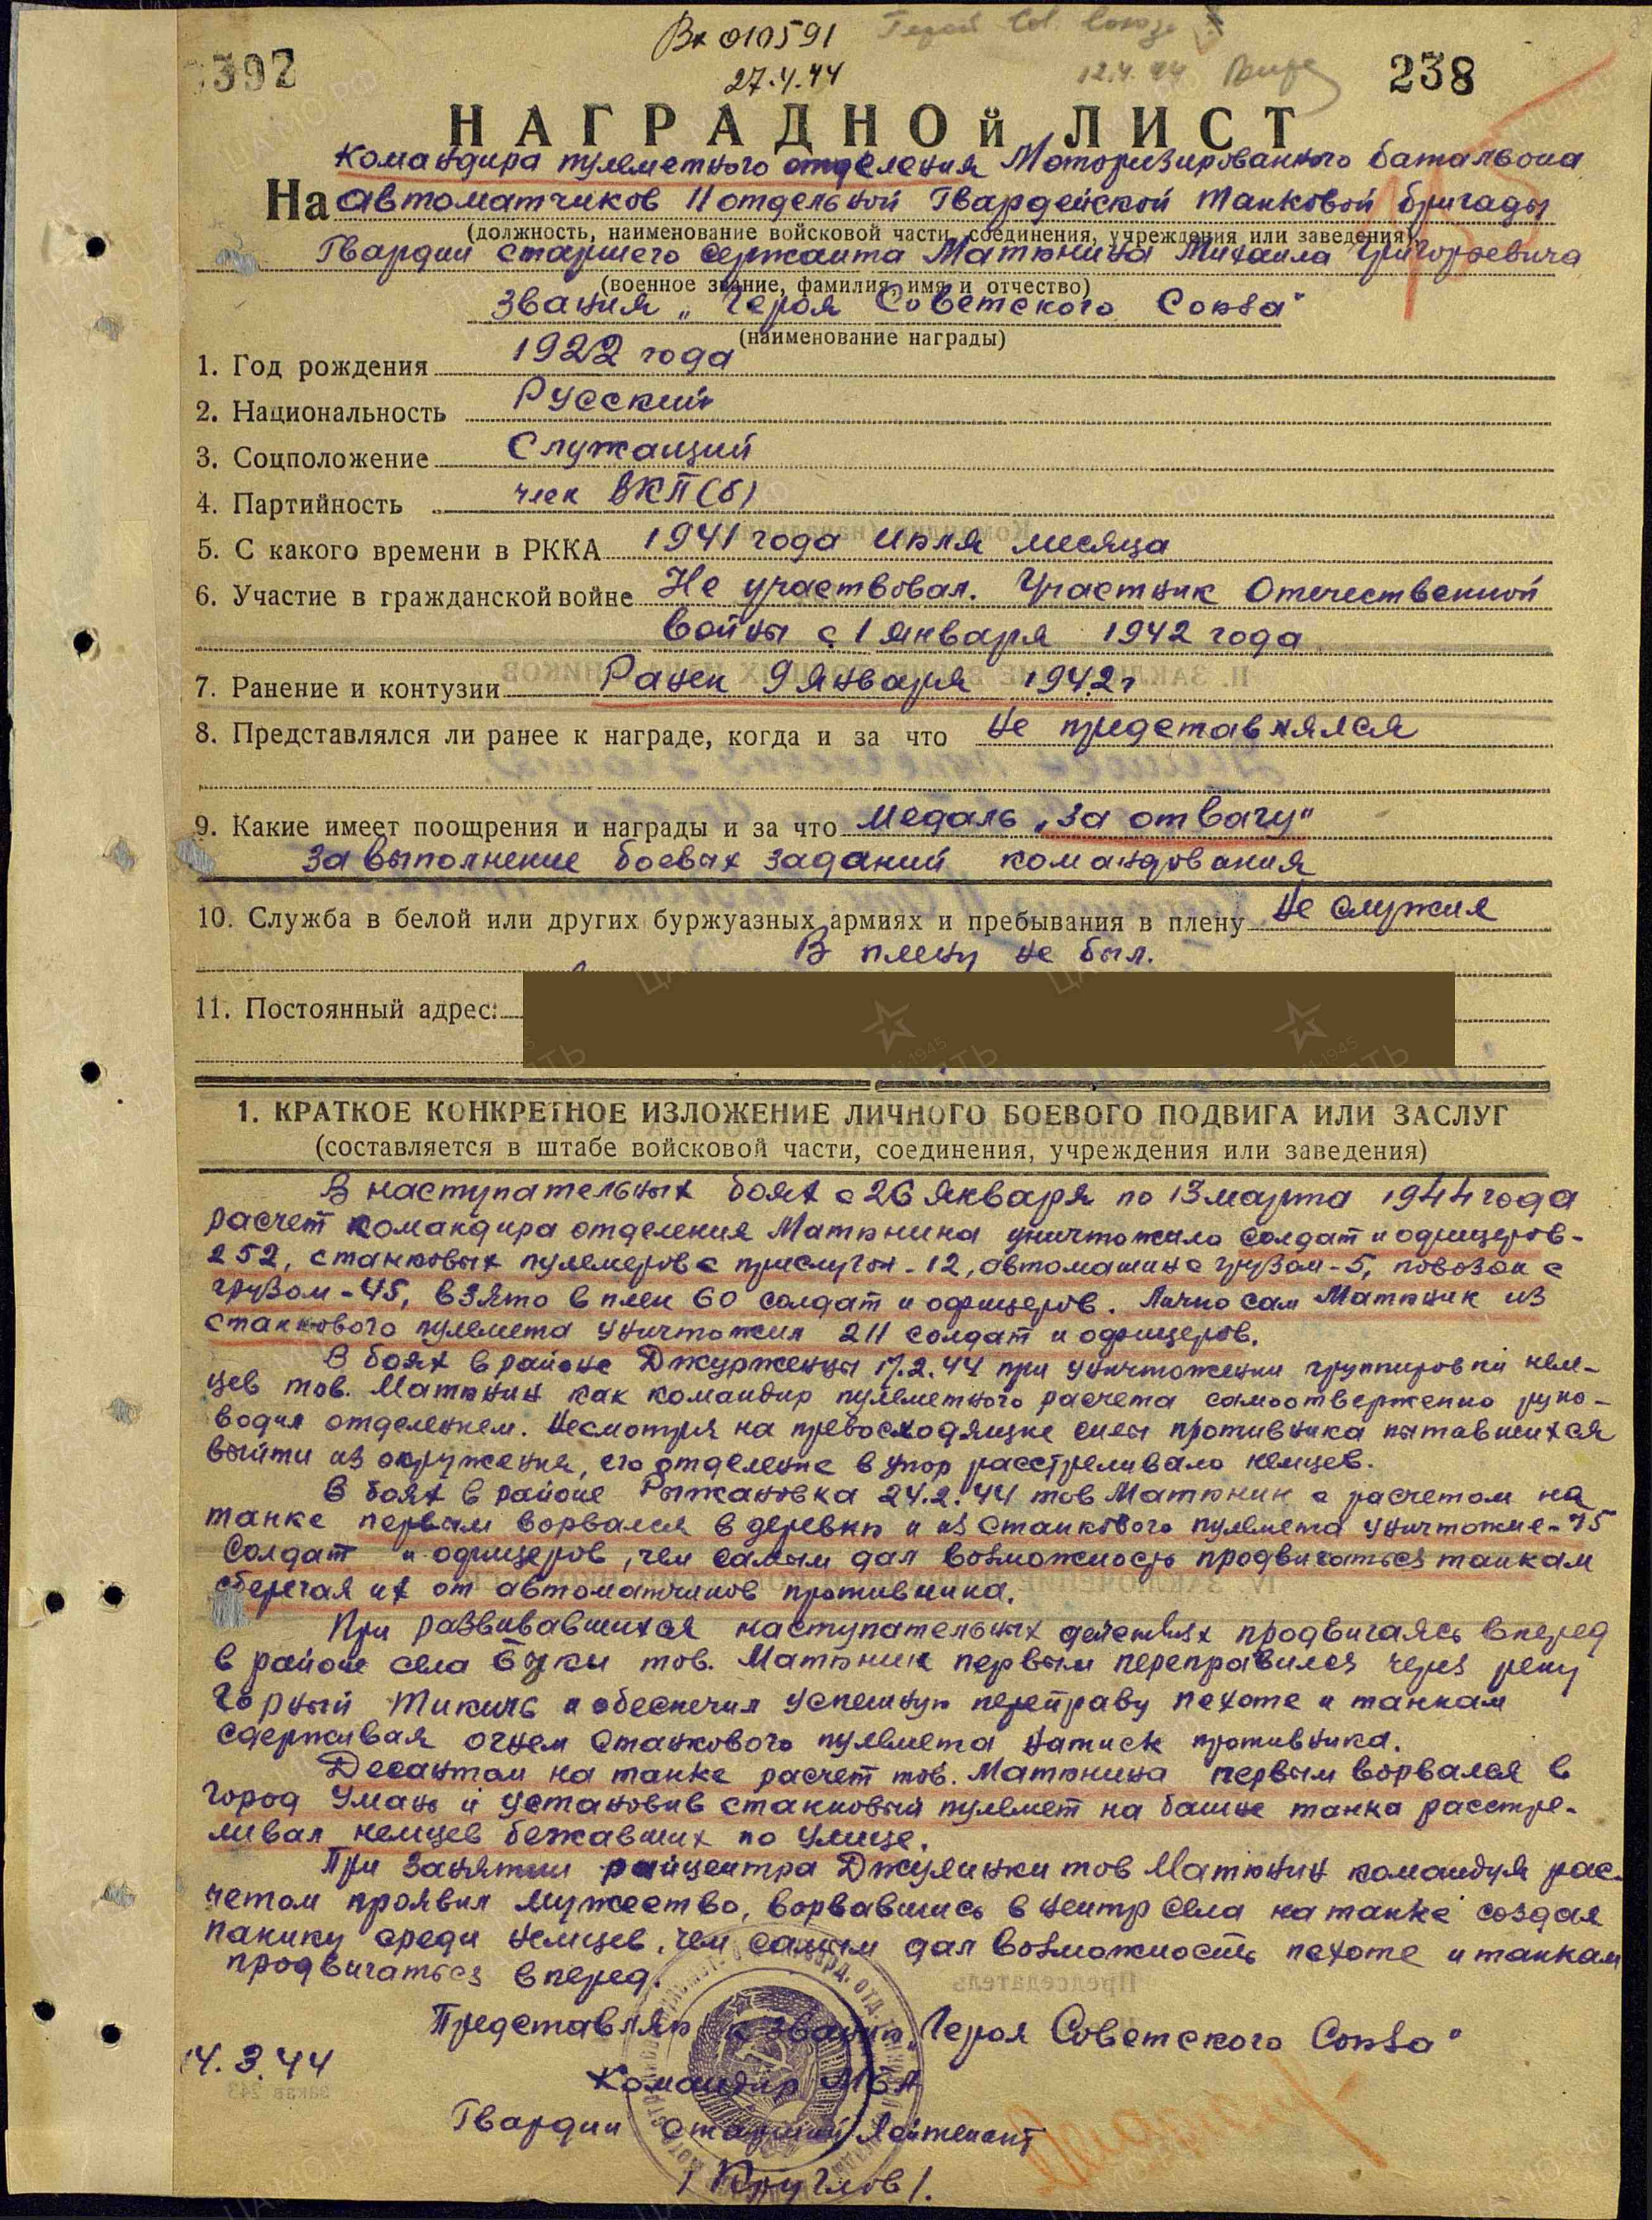 Вх 010591
Герой Сов. Союза
27.4.44
12.4.44
392
238
НАГРАДНОй ЛИСТ
Командира пулеметного отделения Моторизированного баталвона
На автоматчиков 11 отдельной Гвардейской танковой бригады
(должность, наименование войсковой части, соединения, учреждения или заведения)
Гвардии старшего сержанта Матюнина Михаила Григорьевича
(военное звание, фамилия, имя и отчество)
звания „Героя Советского Союза"
(наименование награды)
1. Год рождения 1922 года
2. Национальность Русский
3. Соцположение Служащий
4. Партийность член ВКП(б)
5. С какого времени в РККА 1941 года июля месяца
6. Участие в гражданской войне Не участвовал. Участник Отечественной
войны с 1 января 1942 года
7. Ранение и контузии Ранен 9 января 1942 г
8. Представлялся ли ранее к награде, когда и за что не представлялся
9. Какие имеет поощрения и награды и за что Медаль „За отвагу"
За выполнение боевых заданий командования
10. Служба в белой или других буржуазных армиях и пребывания в плену Не служил
В плену не был.
11. Постоянный адрес:
1. КРАТКОЕ КОНКРЕТНОЕ ИЗЛОЖЕНИЕ ЛИЧНОГО БОЕВОГО ПОДВИГА ИЛИ ЗАСЛУГ
(составляется в штабе войсковой части, соединения, учреждения или заведения)
В наступательных боях с 26 января по 13 марта 1944 года
расчет командира отделения Матюнина уничтожило солдат и офицеров-
252, станковых пулемеров с прислугой - 12, автомашин с грузом - 5, повозок с
грузом - 45, взято в плен 60 солдат и офицеров. Лично сам Матюнин из
станкового пулемета уничтожил 211 солдат и офицеров.
В боях в районе Джурженцы 17.2.44 при уничтожении группировки нем-
цев тов. Матюнин как командир пулеметного расчета самоотверженно руко-
водил отделением. Несмотря на превосходящие силы противника пытавшихся
выйти из окружения, его отделение в упор расстреливало немцев.
В боях в районе Рыжановка 24.2.44 тов Матюнин с расчетом на
танке первым ворвался в деревню и из станкового пулемета уничтожил - 75
солдат и офицеров, чем самым дал возможность продвигаться танкам
сберегая их от автоматчиков противника.
При развивавшихся наступательных действиях продвигаясь вперед
в районе села Буки тов. Матюнин первым переправился через реку
Горный Тикичь и обеспечил успешную переправу пехоте и танкам
сдерживая огнем станкового пулемета натиск противника.
Десантом на танке расчет тов. Матюнина первым ворвался в
город Умань и установив станковый пулемет на башне танка расстре-
ливал немцев бежавших по улице.
При занятии райцентра Джулинки тов Матюнин командуя рас-
четом проявил мужество, ворвавшись в центр села на танке создал
панику среди немцев, чем самым дал возможность пехоте и танкам
продвигаться вперед.
Представляю к званию „Героя Советского Союза"
14.3.44
Командир МБА
Гвардии старший лейтенант
/Круглов/.